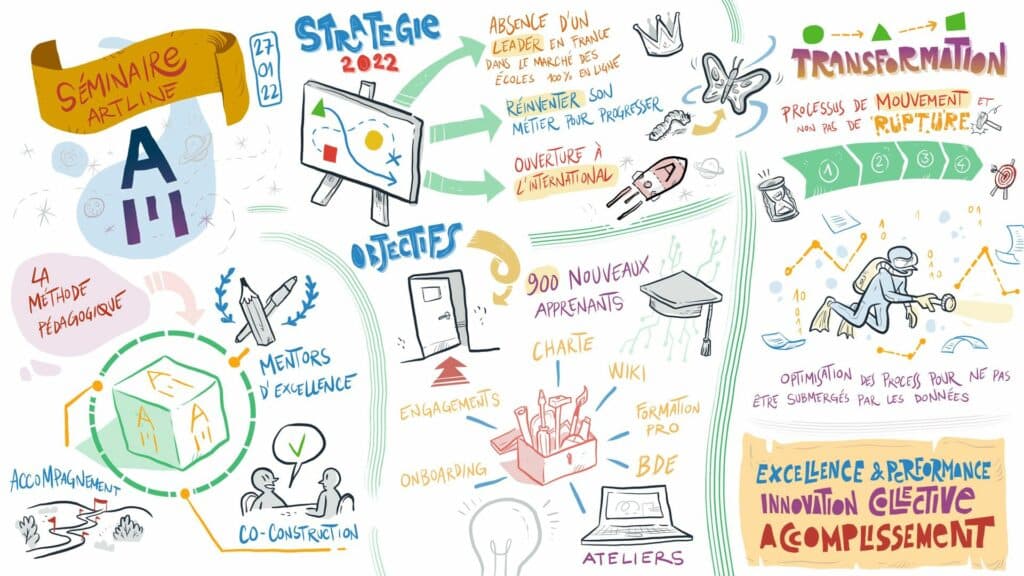 SÉMINAIRE
ARTLINE
27
01
22
A
STRATEGIE
2022
ABSENCE D'UN
LEADER EN FRANCE
DANS LE MARCHÉ DES
ÉCOLES 100% EN LIGNE
RÉINVENTER SON
MÉTIER POUR PROGRESSER
OUVERTURE À
L'INTERNATIONAL
A
TRANSFORMATION
PROCESSUS DE MOUVEMENT ET
NON PAS DE RUPTURE
1 2 3 4
LA
MÉTHODE
PÉDAGOGIQUE
MENTORS
D'EXCELLENCE
ACCOMPAGNEMENT
CO-CONSTRUCTION
OBJECTIFS
900 NOUVEAUX
APPRENANTS
CHARTE
WIKI
ENGAGEMENTS
FORMATION
PRO
ONBOARDING
BDE
ATELIERS
OPTIMISATION DES PROCESS POUR NE PAS
ÊTRE SUBMERGÉS PAR LES DONNÉES
EXCELLENCE & PERFORMANCE
INNOVATION COLLECTIVE
ACCOMPLISSEMENT